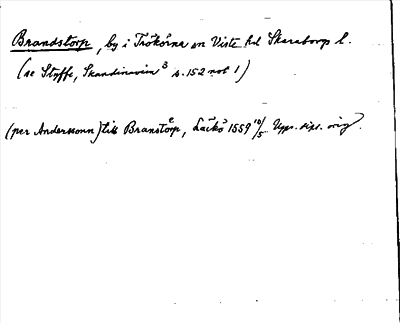 Brandstorp, by i Trökörna sn Viste hd Skaraborgs l.
(se Styffe, Skandinavien 3 s. 152 not 1)
(per Andersson) till Branstorp, Läckö 1559 10/5 Upps. dipl. orig.